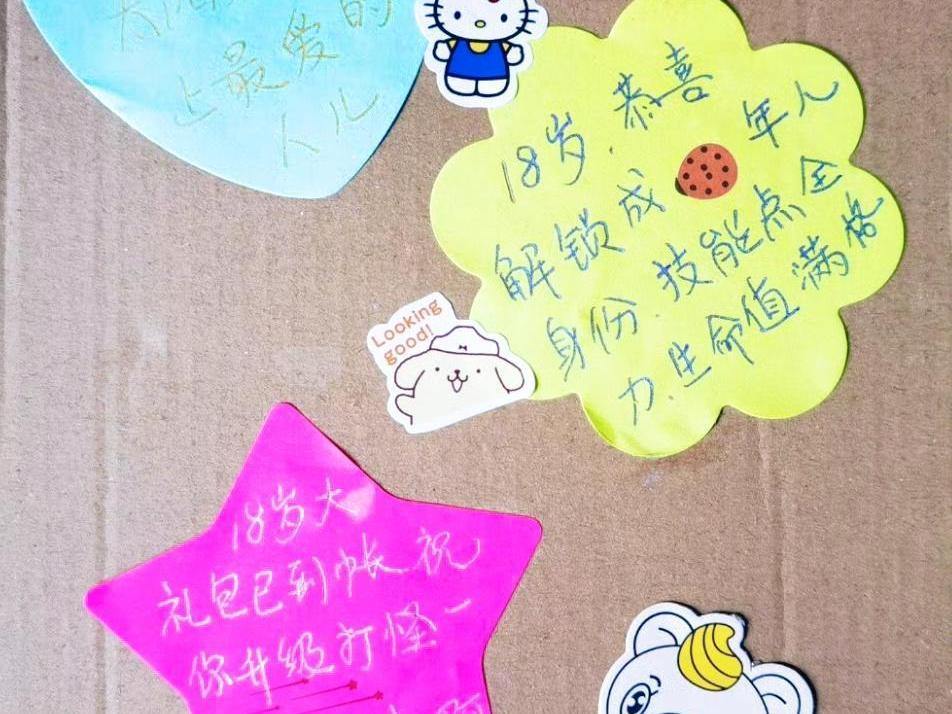 上最爱的
人儿
18岁.恭喜
解锁成年人
身份.技能点全
力.生命值满格
Looking
good!
18岁大
礼包已到帐祝
你升级打怪一